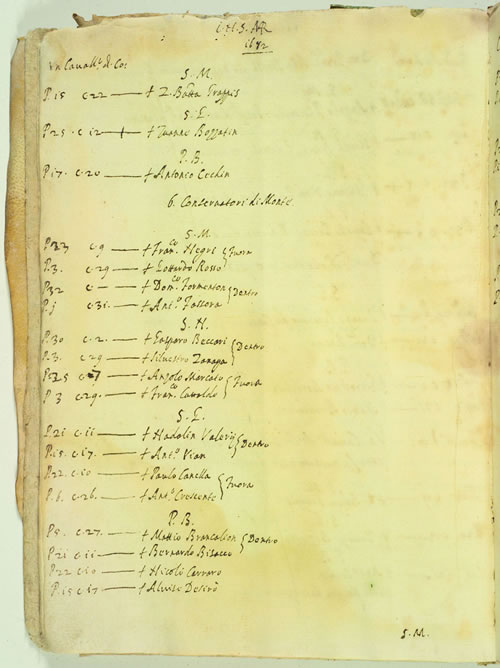 I. H. S. M
1682
Un Cavall.ro di Co:
S. M.
P. 15 c. 22 — + Z. Batta
S. L.
P. 25 c. 12 — + Bozzatin
P. B.
P. 17. c. 20 — + Antonio Cechin
6. Conservatori di Monte
S. M.
P. 23 c. 9 — + Fran.co Negri
Fuora
P. 3. c. 29 — + Rosso
P. 32 c. — — + Dom.co Formenton
Dentro
P. c. 31. — + Ant.o
S. N.
P. 30 c. 2. — + Gasparo Beccari
Dentro
P. 3. c. 29 — + Silvestro
P. 25 c. 7 — + Angolo Marcato
Fuora
P. 3 c. 29. — + Fran.co
S. L.
P. 21 c. 11 — + Nadalin Valerij
Dentro
P. 15. c. 17. — + Ant.o Vian
P. 22. c. 10 — + Paulo Canella
Fuora
P. 6. c. 26. — + Ant.o Crescente
P. B.
P. 5. c. 27. — + Mattio Brancalion
Dentro
P. 21 c. 11 — + Bernardo Bisacco
P. 22 c. 10 — + Nicolò Carraro
P. 15 c. 17 — + Alvise Desirò
S. M.